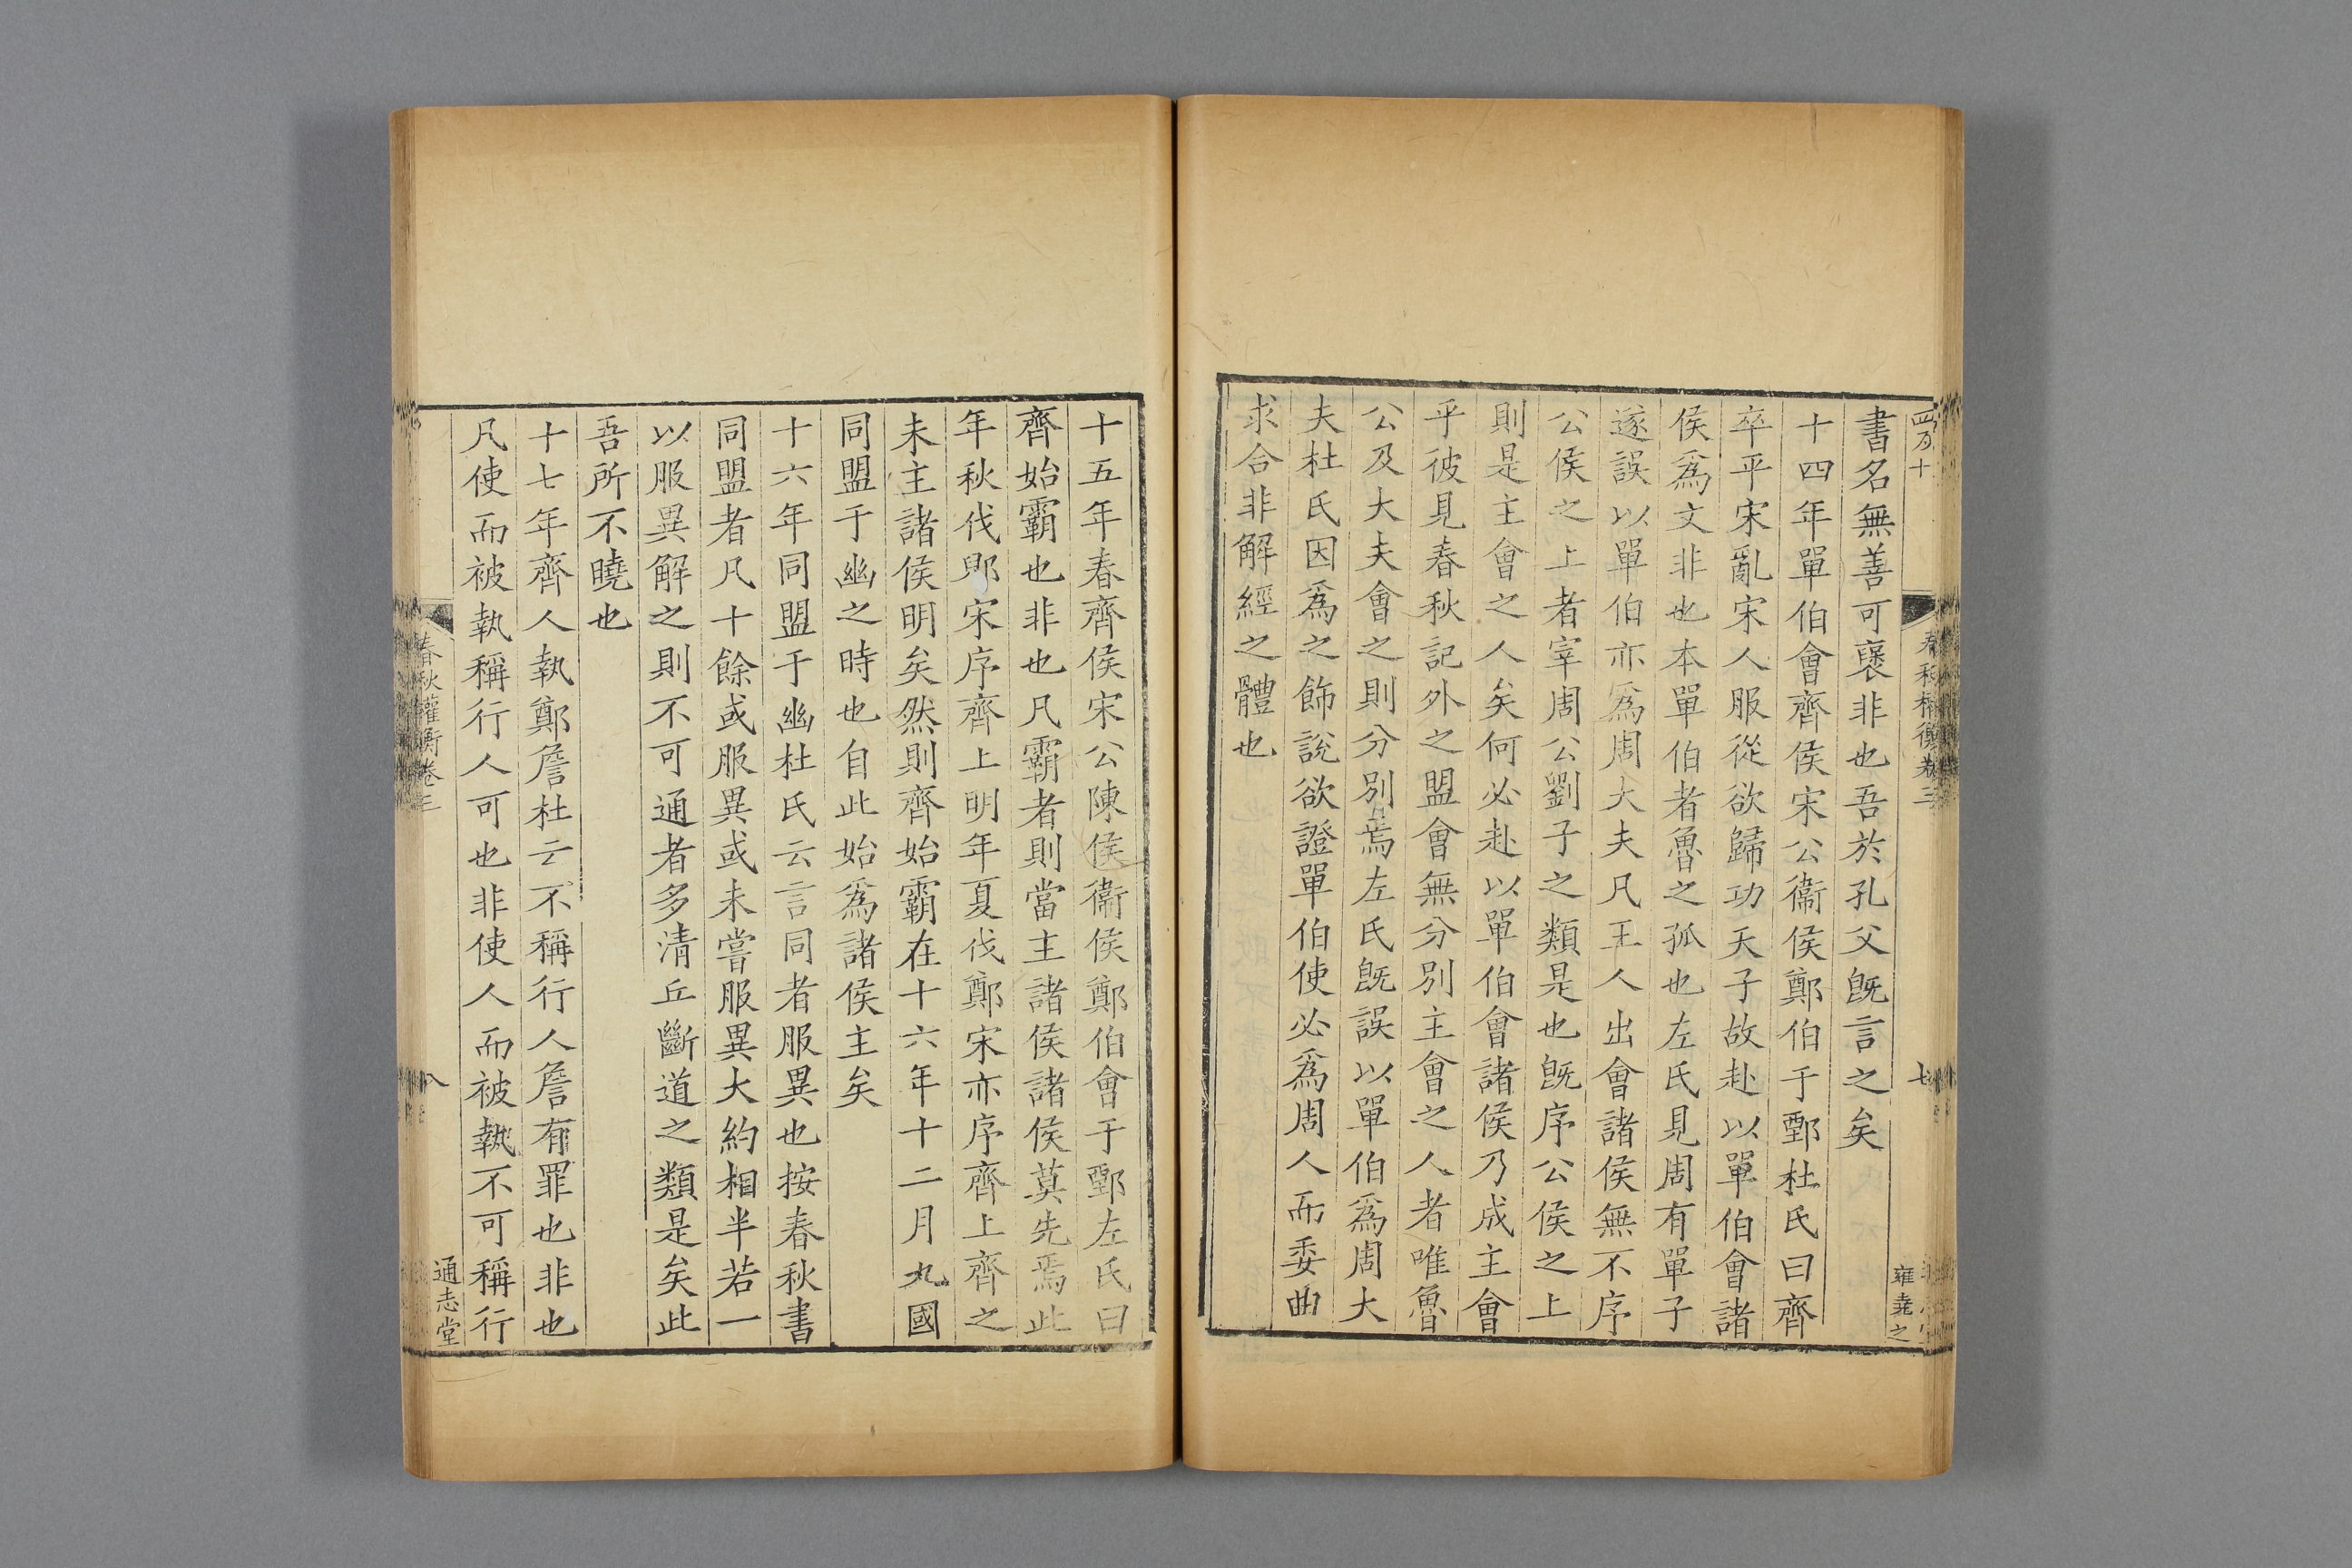 四百十
春秋權衡卷三
七
雍堯之
書名無善可襃非也吾於孔父既言之矣
十四年單伯會齊侯宋公衞侯鄭伯于鄄杜氏曰齊
卒平宋亂宋人服從欲歸功天子故赴以單伯會諸
侯爲文非也本單伯者魯之孤也左氏見周有單子
遂誤以單伯亦爲周大夫凡王人出會諸侯無不序
公侯之上者宰周公劉子之類是也既序公侯之上
則是主會之人矣何必赴以單伯會諸侯乃成主會
乎彼見春秋記外之盟會無分別主會之人者唯魯
公及大夫會之則分別焉左氏既誤以單伯爲周大
夫杜氏因爲之飾說欲證單伯使必爲周人而委曲
求合非解經之體也
十五年春齊侯宋公陳侯衞侯鄭伯會于鄄左氏曰
齊始霸也非也凡霸者則當主諸侯諸侯莫先焉此
年秋伐郳宋序齊上明年夏伐鄭宋亦序齊上齊之
未主諸侯明矣然則齊始霸在十六年十二月九國
同盟于幽之時也自此始爲諸侯主矣
十六年同盟于幽杜氏云言同者服異也按春秋書
同盟者凡十餘或服異或未嘗服異大約相半若一
以服異解之則不可通者多清丘斷道之類是矣此
吾所不曉也
十七年齊人執鄭詹杜云不稱行人詹有罪也非也
凡使而被執稱行人可也非使人而被執不可稱行
春秋權衡卷三
八
通志堂